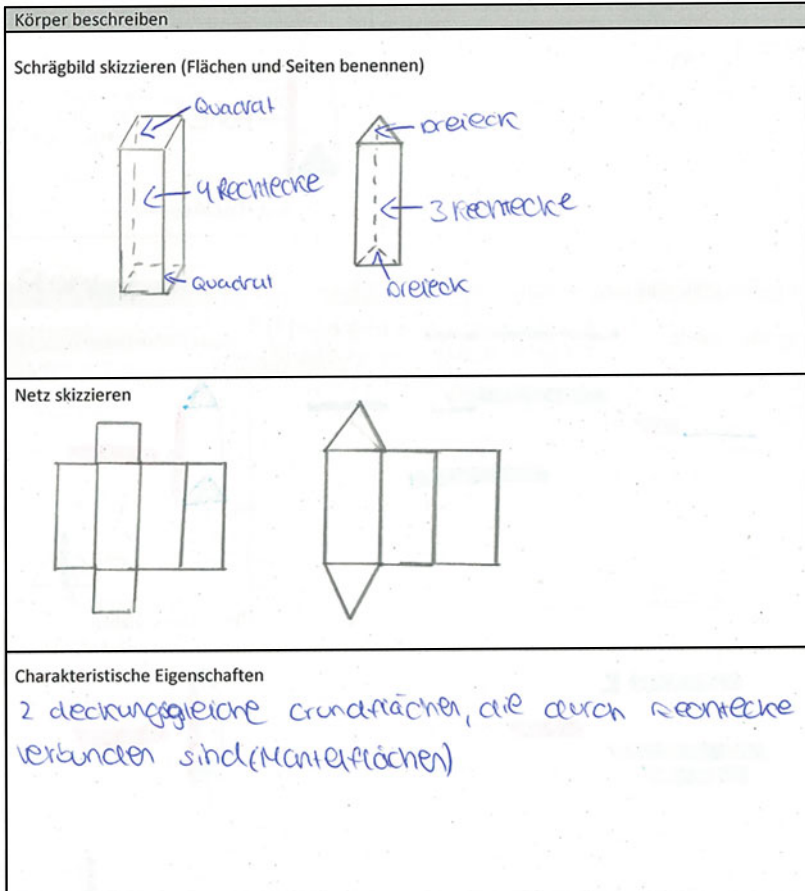 Körper beschreiben
Schrägbild skizzieren (Flächen und Seiten benennen)
Quadrat
4 Rechtecke
Quadrat
Dreieck
3 Rechtecke
Dreieck
Netz skizzieren
Charakteristische Eigenschaften
2 deckungsgleiche Grundflächen, die durch Rechtecke
verbunden sind (Mantelflächen)